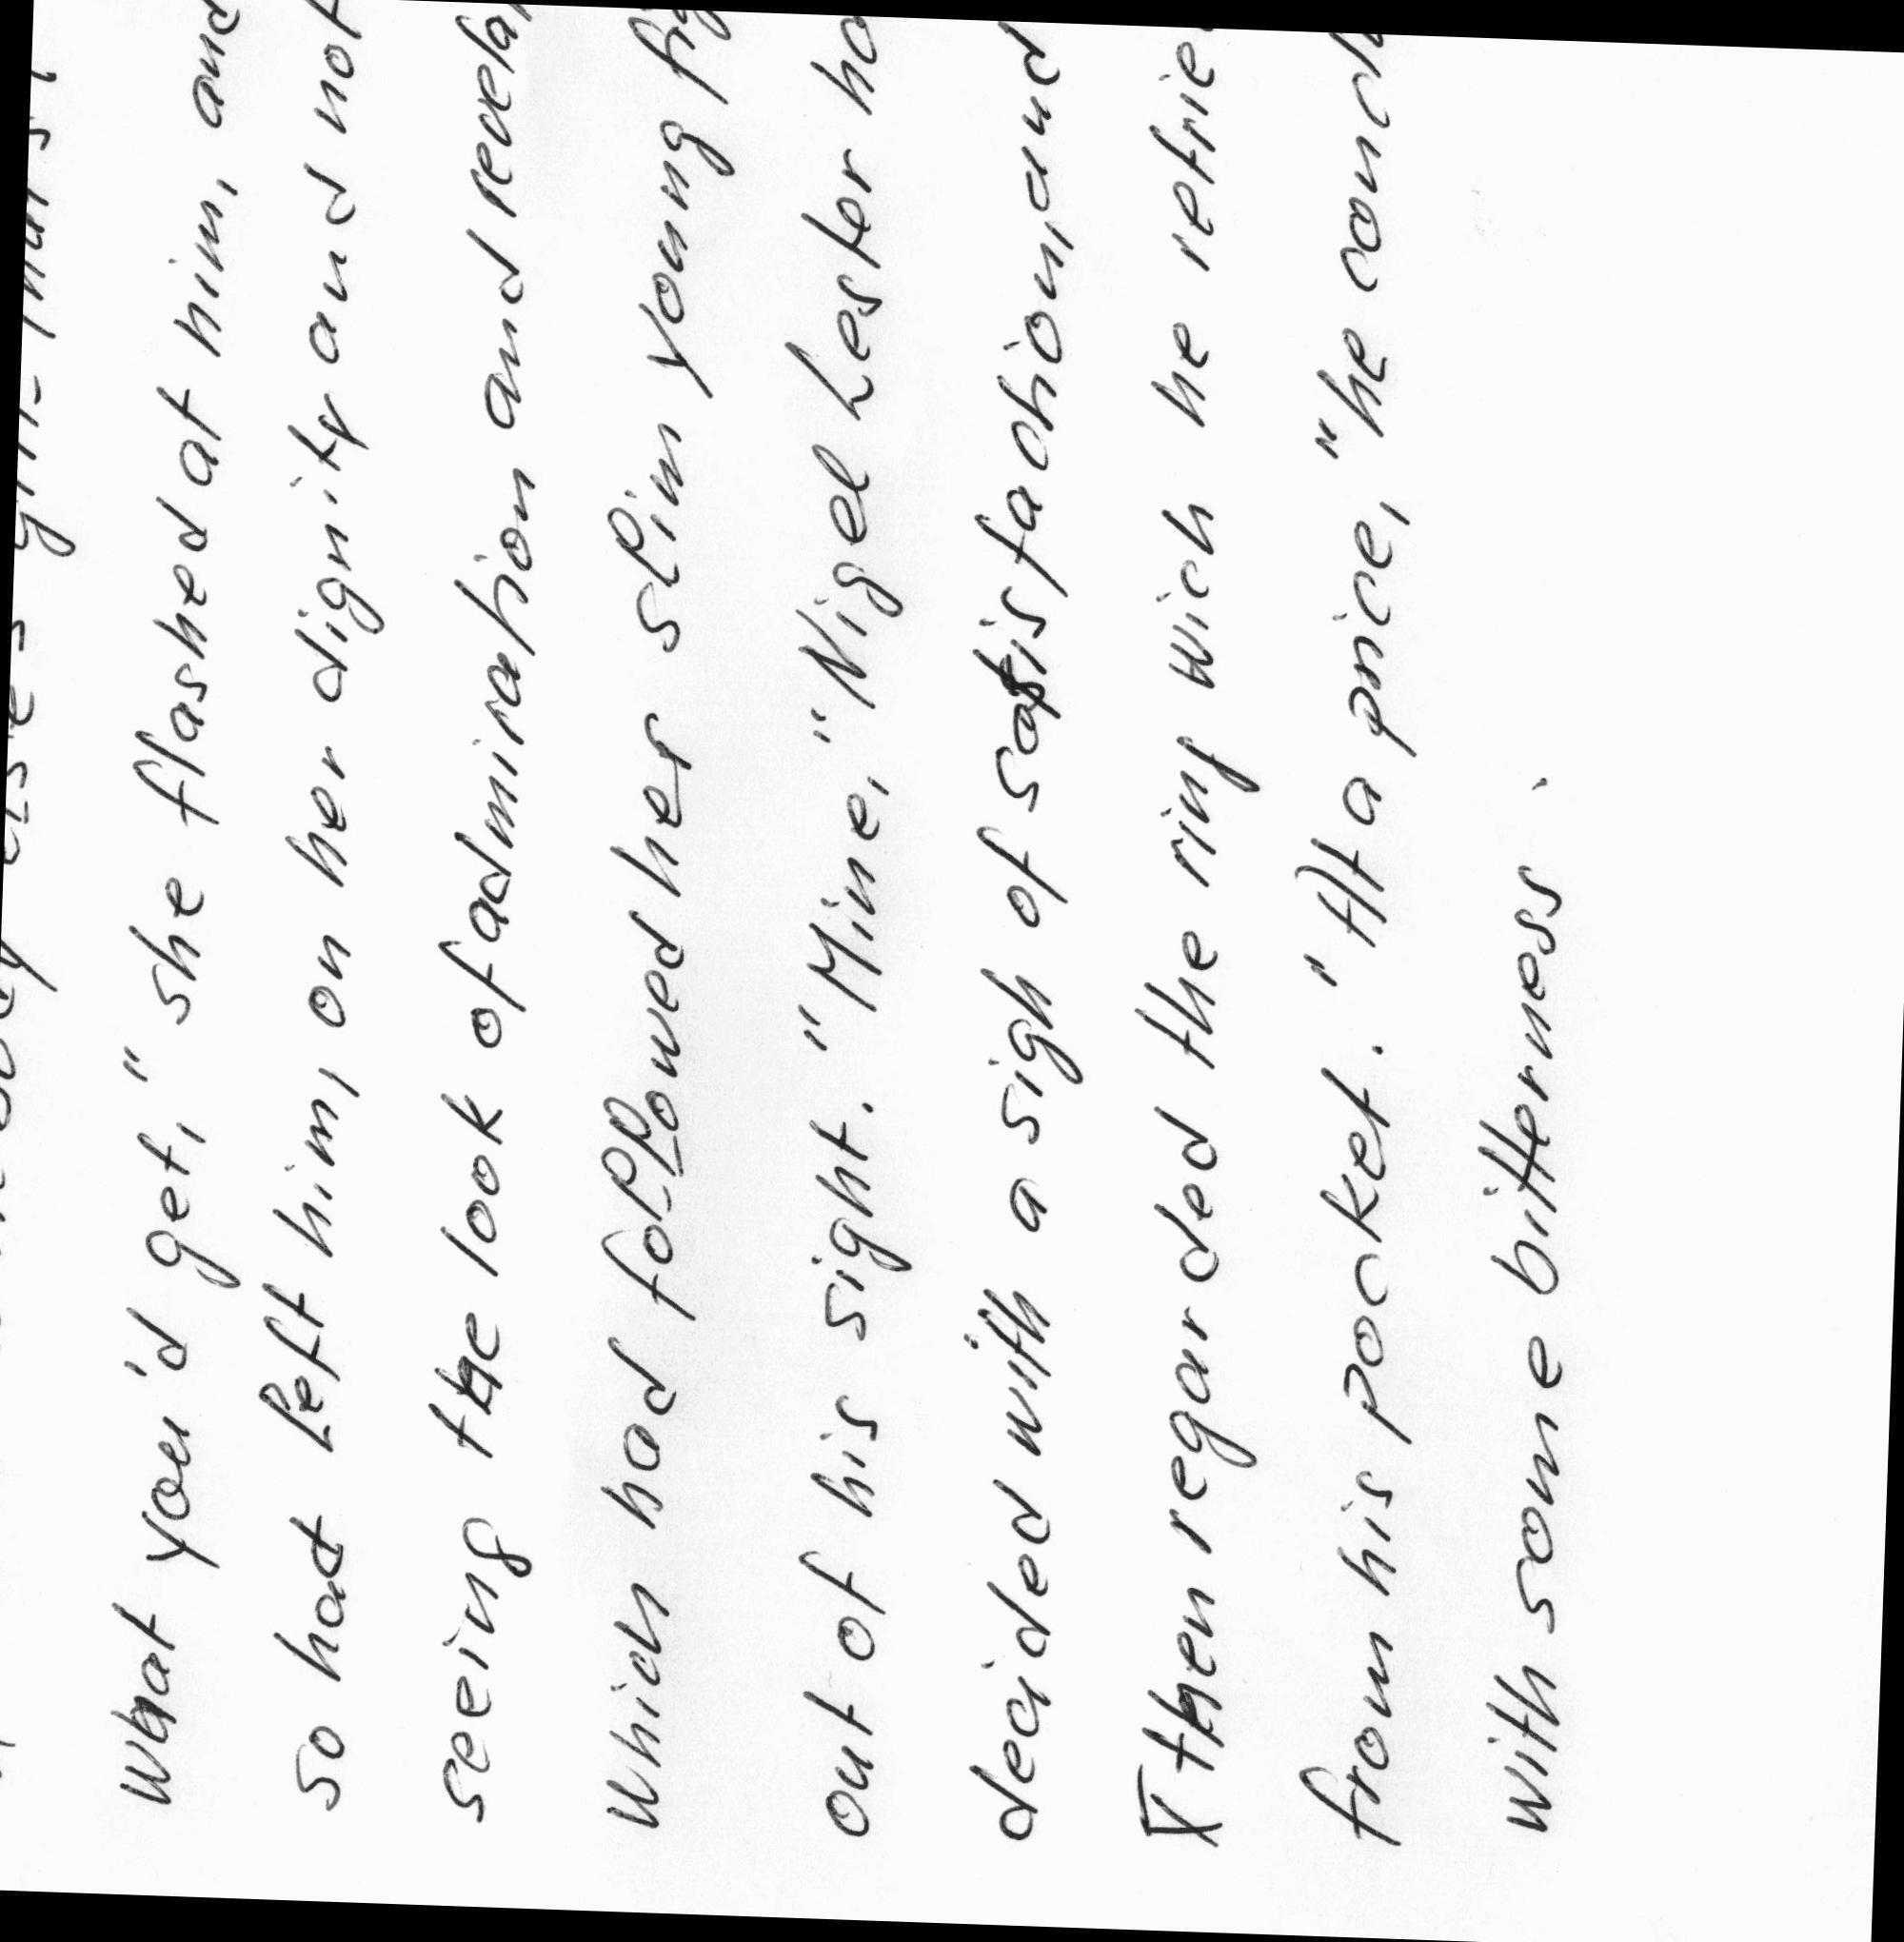 What you'd get," she flashed at him, and
so hat left him, on her dignity and not
seeing the look of admiration and
Which had followed her slim young
out of his sight. "Mine," Nigel Lester
decided with a sigh of satisfaction, and
then regarded the ring wich he
from his pocket. "At a price," he
with some bitterness.